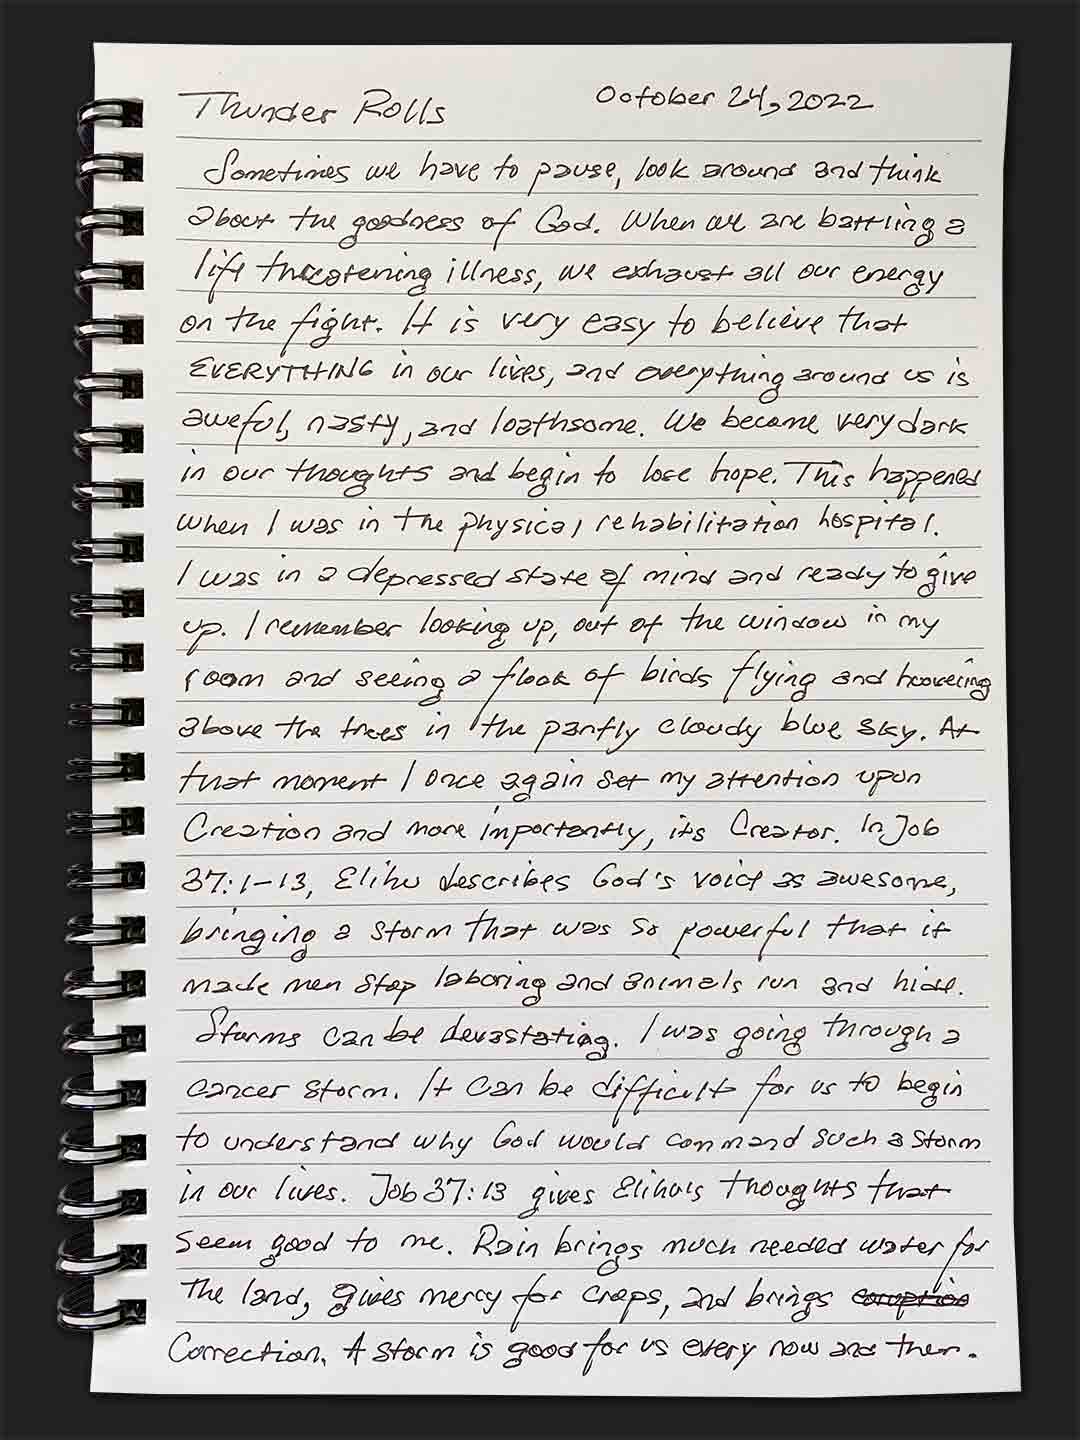 Thunder Rolls October 24, 2022
Sometimes we have to pause, look around and think
about the goodness of God. When we are battling a
life threatening illness, we exhaust all our energy
on the fight. It is very easy to believe that
EVERYTHING in our lives, and everything around us is
aweful, nasty, and loathsome. We become very dark
in our thoughts and begin to lose hope. This happened
when I was in the physical rehabilitation hospital.
I was in a depressed state of mind and ready to give
up. I remember looking up, out of the window in my
room and seeing a flock of birds flying and hovering
above the trees in the partly cloudy blue sky. At
that moment I once again set my attention upon
Creation and more importantly, its Creator. In Job
37:1-13, Elihu describes God's voice as awesome,
bringing a storm that was so powerful that it
made men stop laboring and animals run and hide.
Storms can be devastating. I was going through a
cancer storm. It can be difficult for us to begin
to understand why God would command such a storm
in our lives. Job 37:13 gives Elihu's thoughts that
seem good to me. Rain brings much needed water for
the land, gives mercy for crops, and brings
Correction. A storm is good for us every now and then.